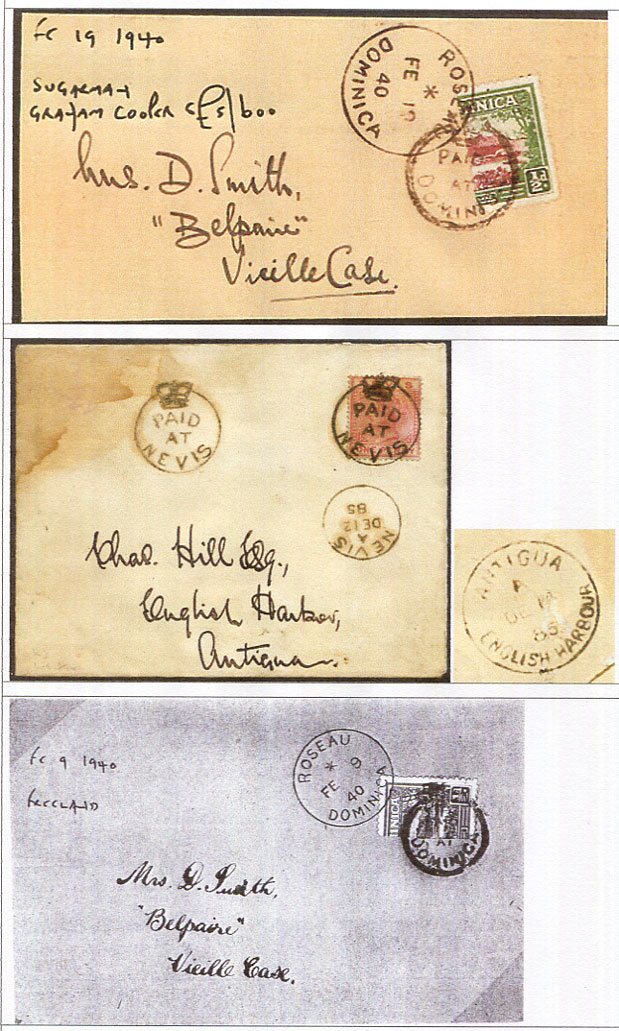 Fe 19 1940
SUGARMAN
GRAHAM COOPER
ROSEAU
*
FE 19
40
DOMINICA
INICA
½d
PAID
AT
DOMINI
Mrs. D. Smith,
"Belpaire"
Vieille Case.
PAID
AT
NEVIS
S
PAID
AT
NEVIS
NEVIS
A
DE 12
85
Chas. Hill Esq.,
English Harbor,
Antigua.
ANTIGUA
A
DE 14
85
ENGLISH HARBOUR
Fe 9 1940
ROSEAU
*
FE 9
40
DOMINICA
INICA
AT
DOMINICA
Mrs. D. Smith,
"Belpaire"
Vieille Case.